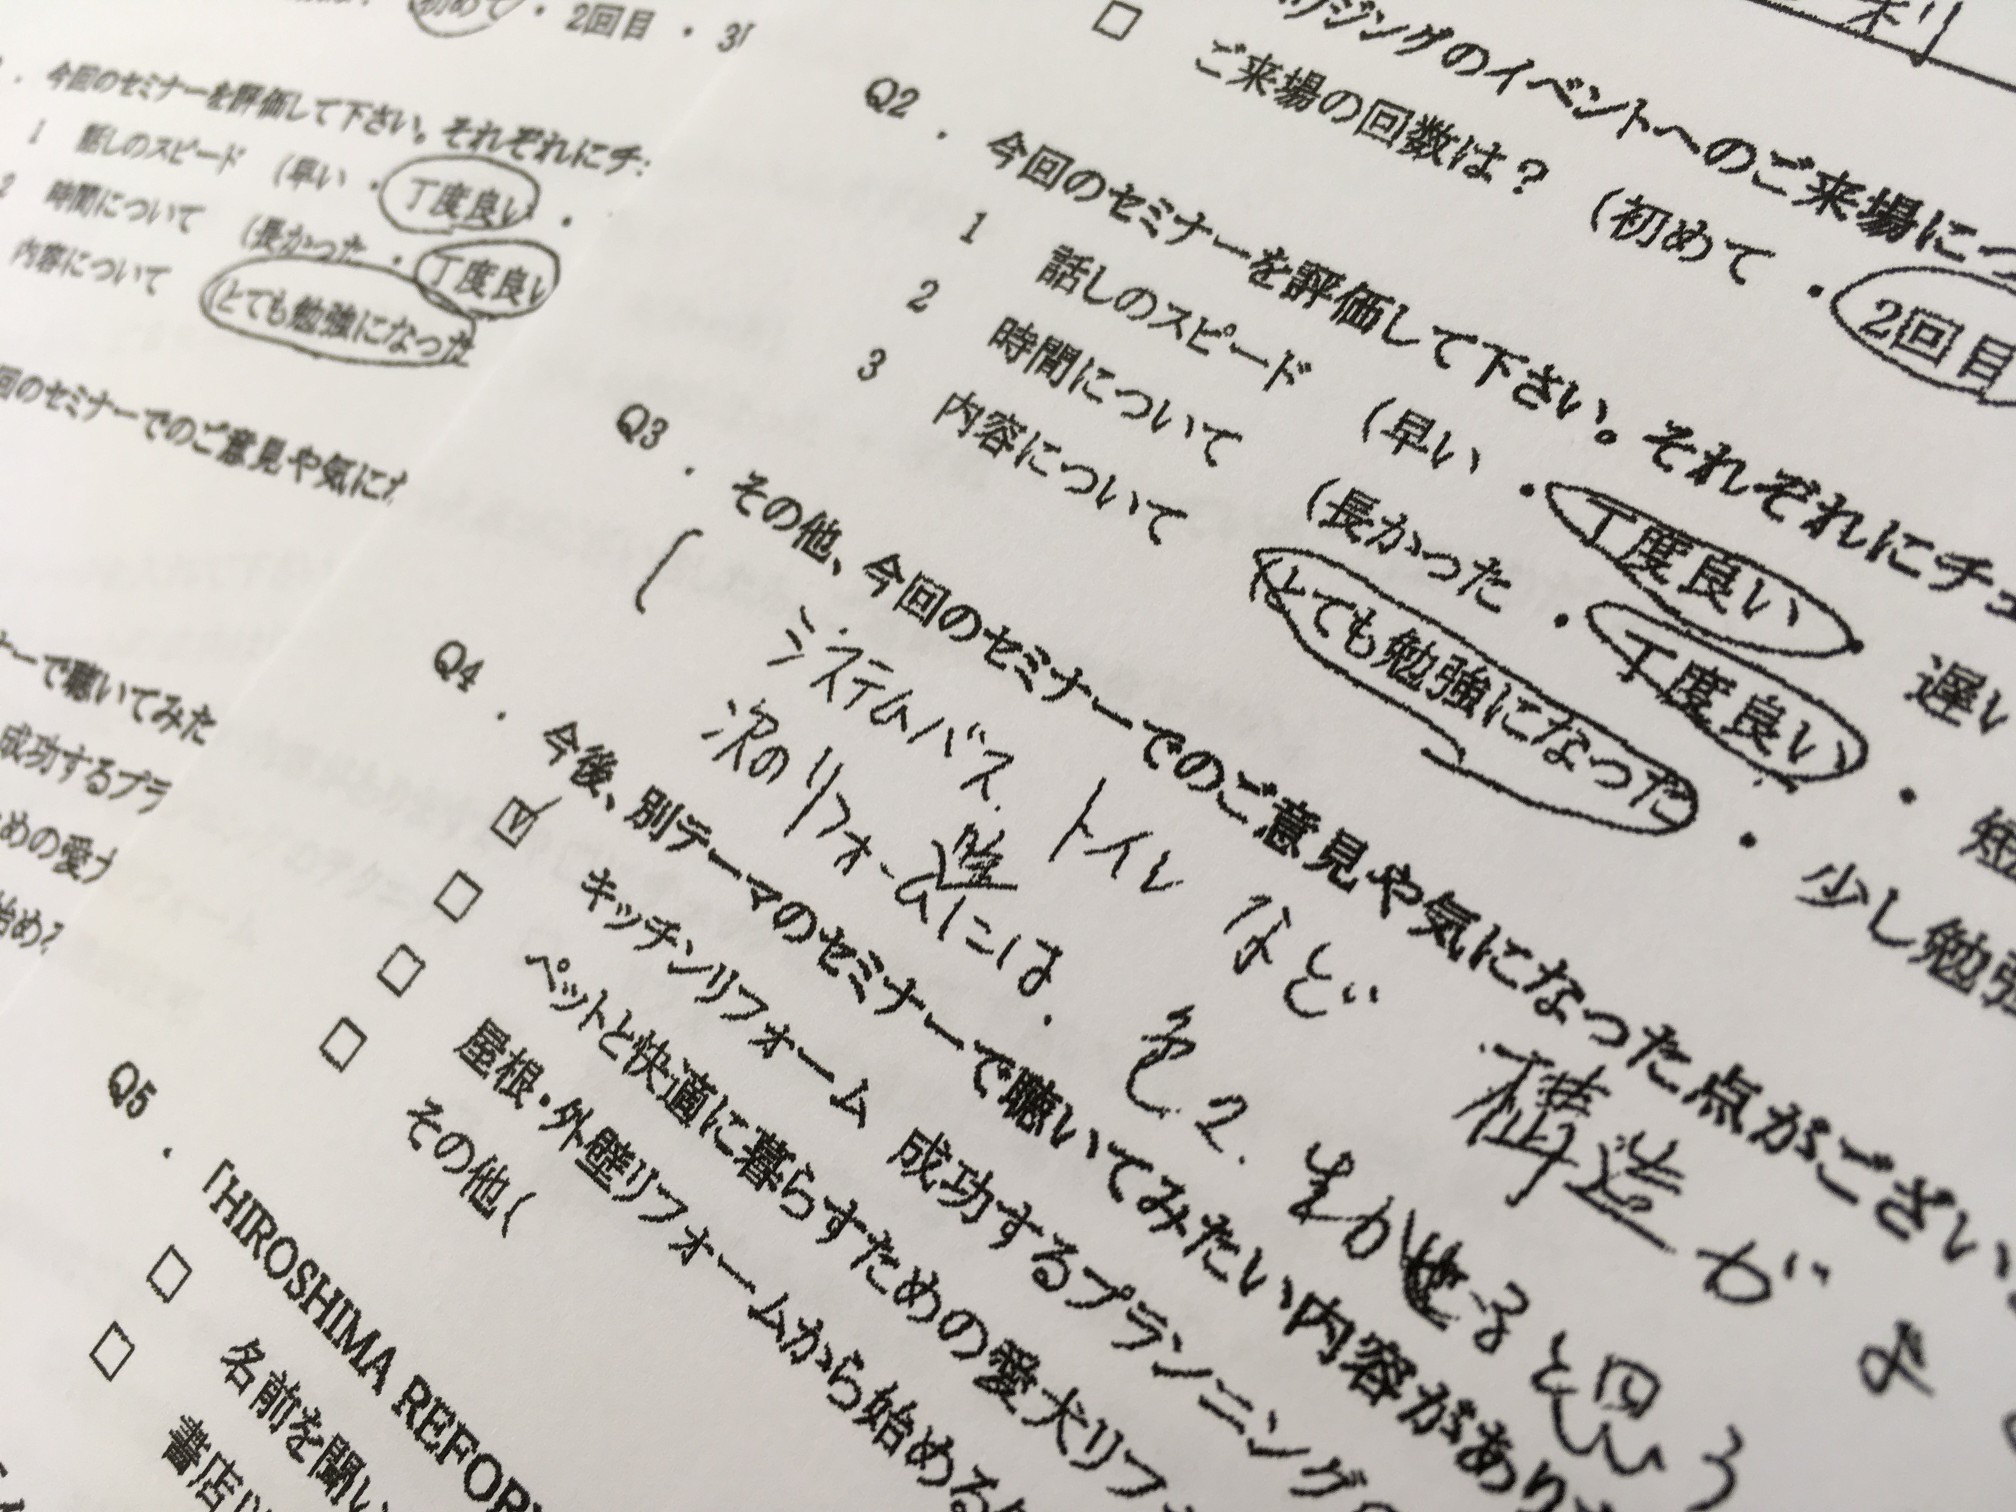 2回目 ・ 3
今回のセミナーを評価して下さい。それぞれにチ
1 話しのスピード (早い ・ 丁度良い ・
2 時間について (長かった ・ 丁度良い
内容について (とても勉強になった
回のセミナーでのご意見や気に
ナーで聴いてみた
成功するプラ
めの愛
始め
ジングのイベントへのご来場につ
□ ご来場の回数は? (初めて ・ 2回目
Q2 . 今回のセミナーを評価して下さい。それぞれにチェ
1 話しのスピード (早い ・ 丁度良い ・ 遅い
2 時間について (長かった ・ 丁度良い ・ 短
3 内容について (とても勉強になった ・ 少し勉強
Q3 . その他、今回のセミナーでのご意見や気になった点がござい
システムバス. トイレ など 構造が
次のリフォームには. 色々. 生かせると思う
Q4 . 今後、別テーマのセミナーで聴いてみたい内容があり
☑ キッチンリフォーム 成功するプランニングの
□ ペットと快適に暮らすための愛犬リフ
□ 屋根・外壁リフォームから始める
□ その他(
Q5 . 「HIROSHIMA REFOR
□ 名前を聞い
□ 書店